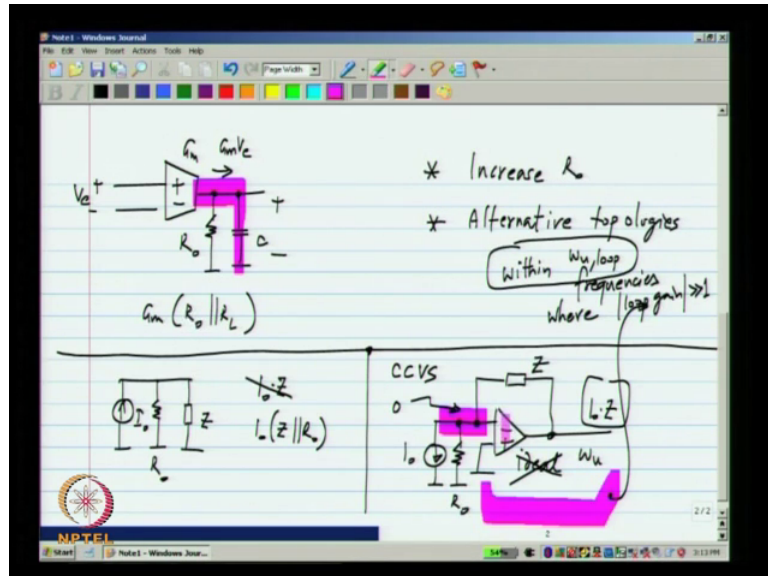 Note1 - Windows Journal
File Edit View Insert Actions Tools Help
Page Width
Gm GmVe
Ve + -
+ -
Ro C
+ -
Gm (Ro || RL)
* Increase Ro
* Alternative topologies
within wu,loop
frequencies
where |loop gain| >> 1
Io Ro Z
Io·Z
Io (Z || Ro)
CCVS
0
Z
Io·Z
Io
Ro
ideal wu
NPTEL
2/2
2
Start Note1 - Windows Jour... 54% 3:13 PM